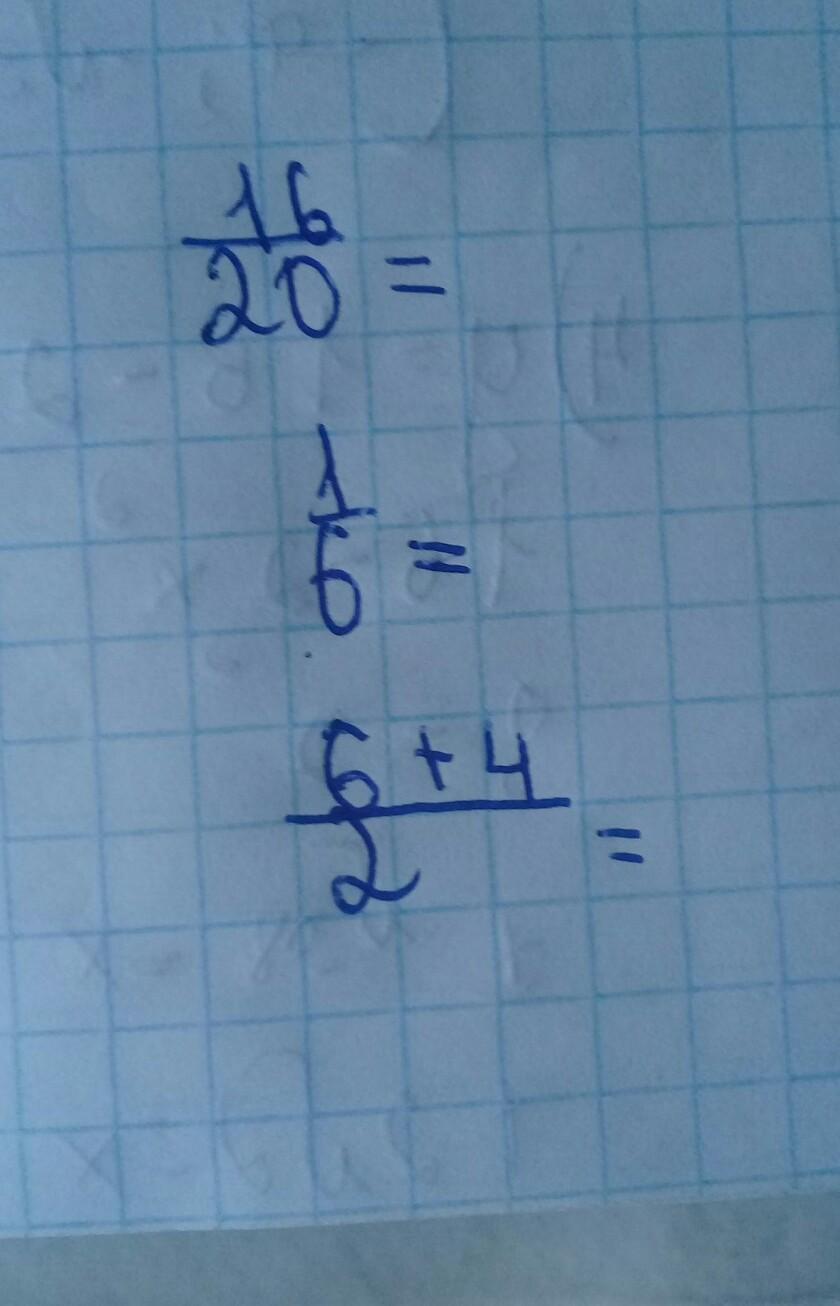 16/20 =
1/6 =
6 + 4/2 =